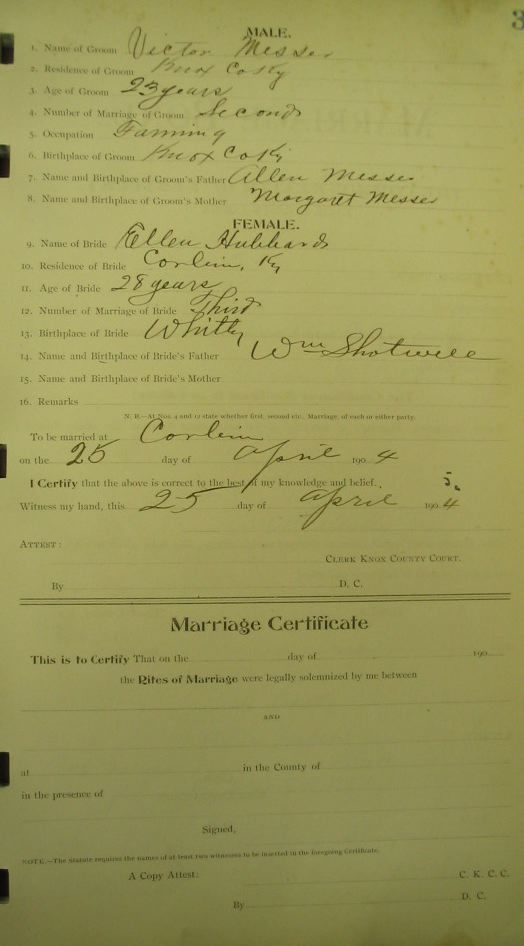 3
MALE.
1. Name of Groom Victor Messer
2. Residence of Groom Knox Co Ky
3. Age of Groom 23 years
4. Number of Marriage of Groom Second
5. Occupation Farming
6. Birthplace of Groom Knox Co Ky
7. Name and Birthplace of Groom's Father Allen Messer
8. Name and Birthplace of Groom's Mother Margaret Messer
FEMALE.
9. Name of Bride Ellen Hubbard
10. Residence of Bride Corbin, Ky
11. Age of Bride 28 years
12. Number of Marriage of Bride Third
13. Birthplace of Bride Whitly
14. Name and Birthplace of Bride's Father Wm Shotwell
15. Name and Birthplace of Bride's Mother
16. Remarks
N. B.—At Nos. 4 and 12 state whether first, second etc., Marriage, of each or either party.
To be married at Corbin
on the 25 day of April 190 4
I Certify that the above is correct to the best of my knowledge and belief.
Witness my hand, this 25 day of April 190 4
ATTEST:
CLERK KNOX COUNTY COURT.
By D. C.
Marriage Certificate
This is to Certify That on the day of 190
the Rites of Marriage were legally solemnized by me between
AND
at in the County of
in the presence of
Signed,
NOTE.—The Statute requires the names of at least two witnesses to be inserted in the foregoing Certificate.
A Copy Attest: C. K. C. C.
By D. C.